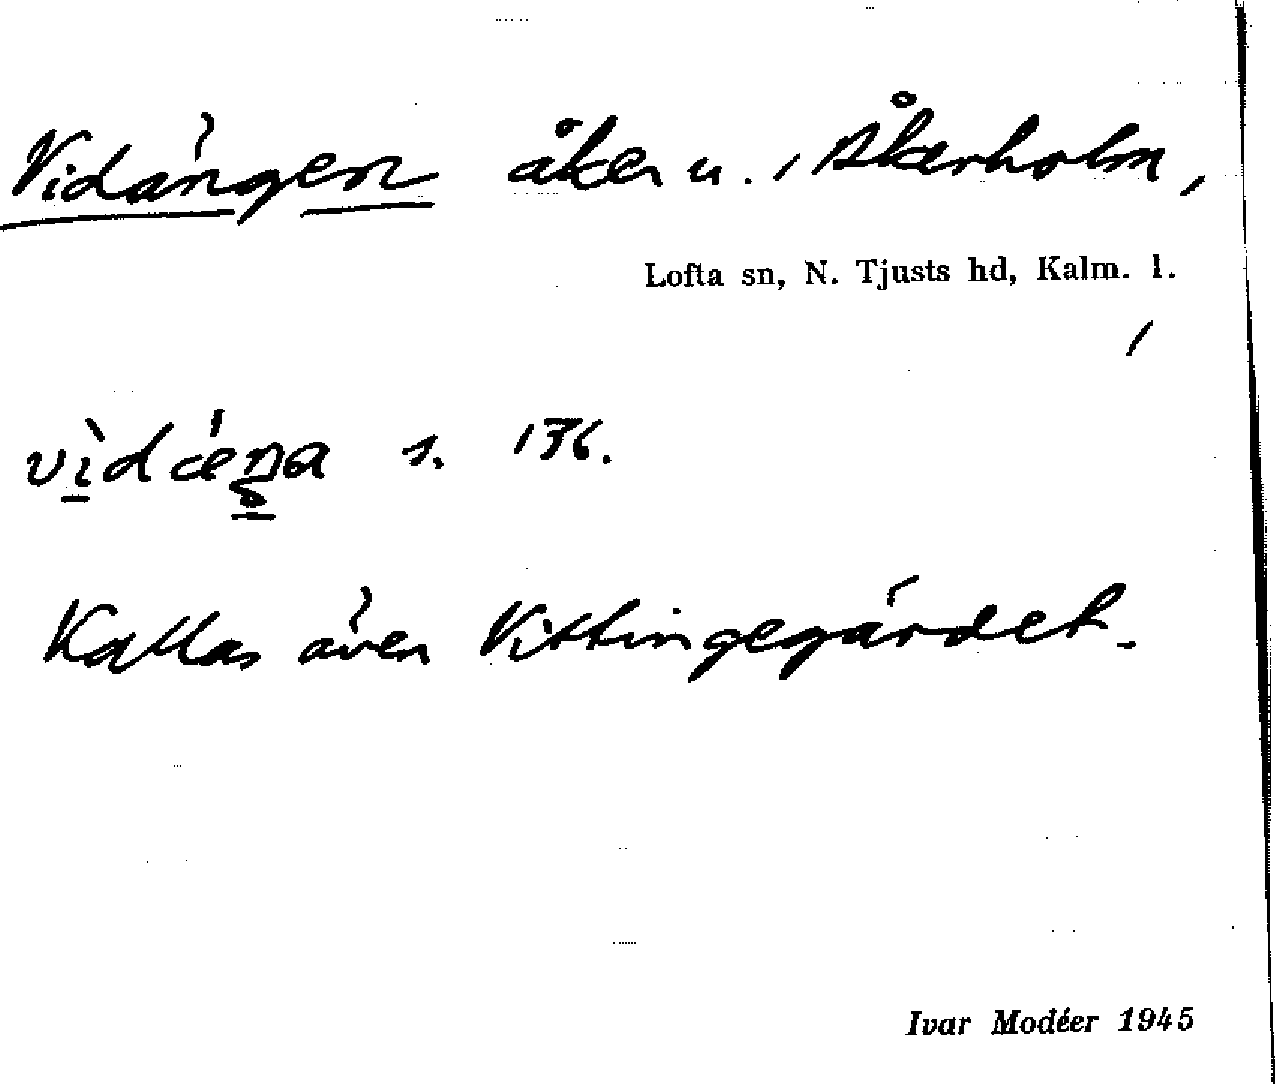 Vidängen åker u. Åkerholm,
Lofta sn, N. Tjusts hd, Kalm. l.
s. 136.
Kallas även Vittingegärdet.
Ivar Modéer 1945